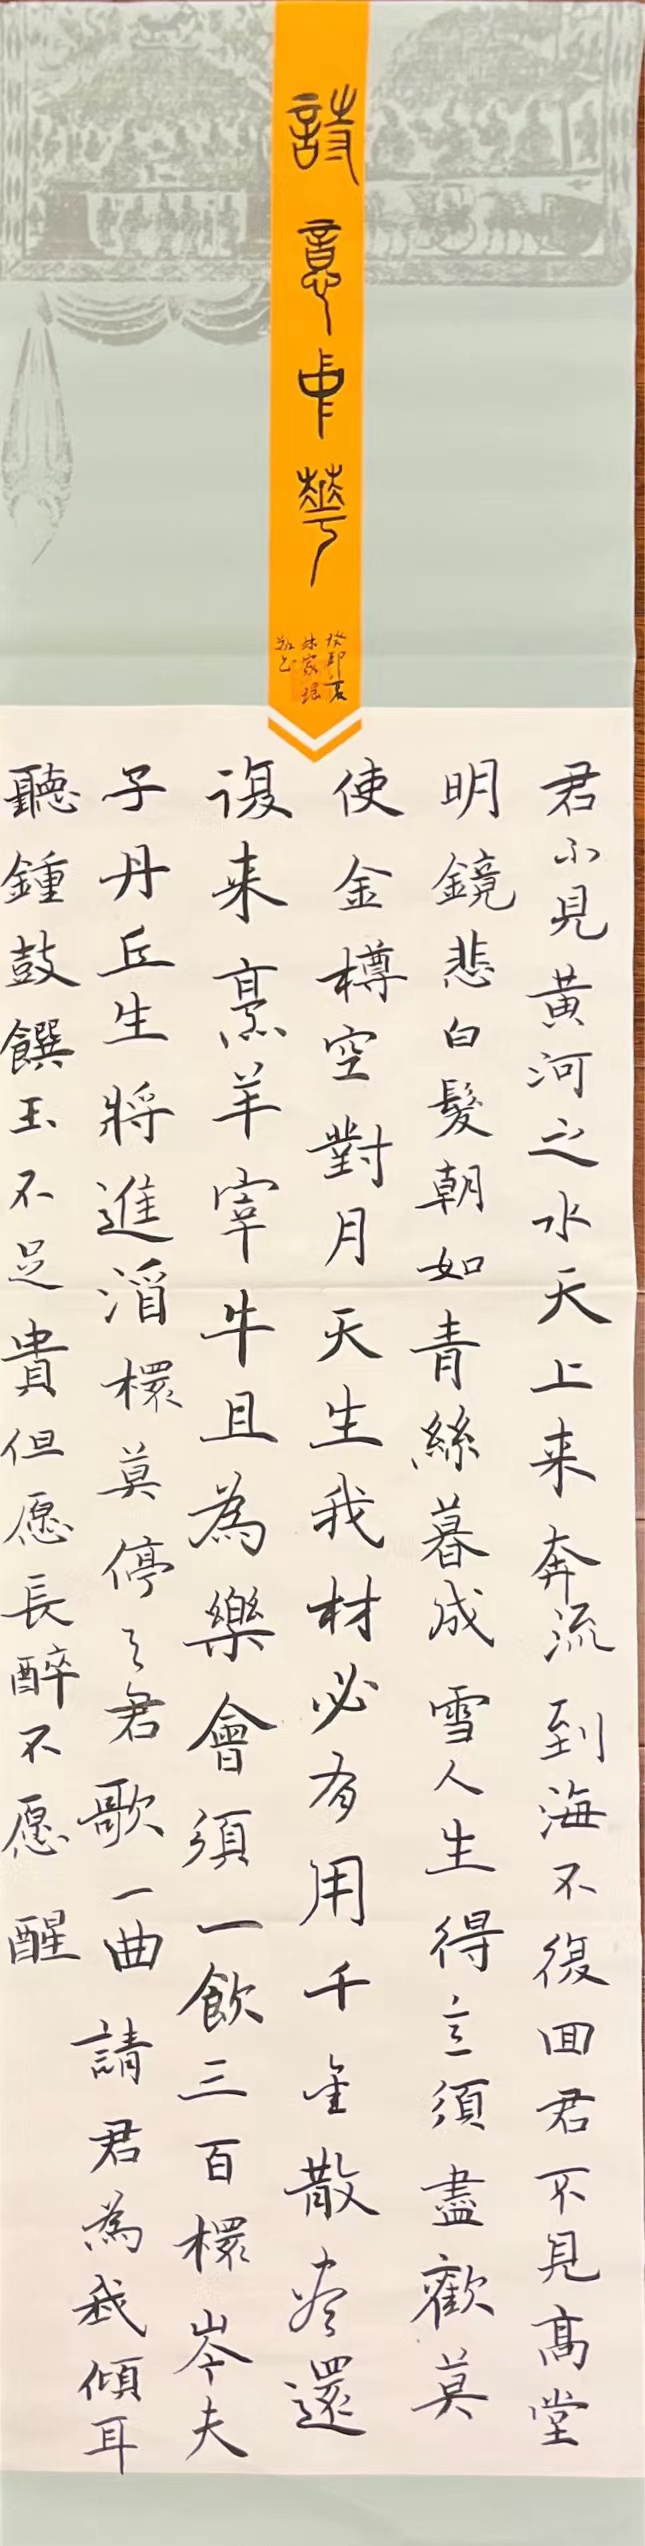 詩意中華
癸卯夏
君不見黄河之水天上来奔流到海不復回君不見高堂
明鏡悲白髮朝如青絲暮成雪人生得意須盡歡莫
使金樽空對月天生我材必有用千金散尽還
復来烹羊宰牛且為樂會須一飲三百杯岑夫
子丹丘生將進酒杯莫停与君歌一曲請君為我傾耳
聽鍾鼓饌玉不足貴但愿長醉不愿醒